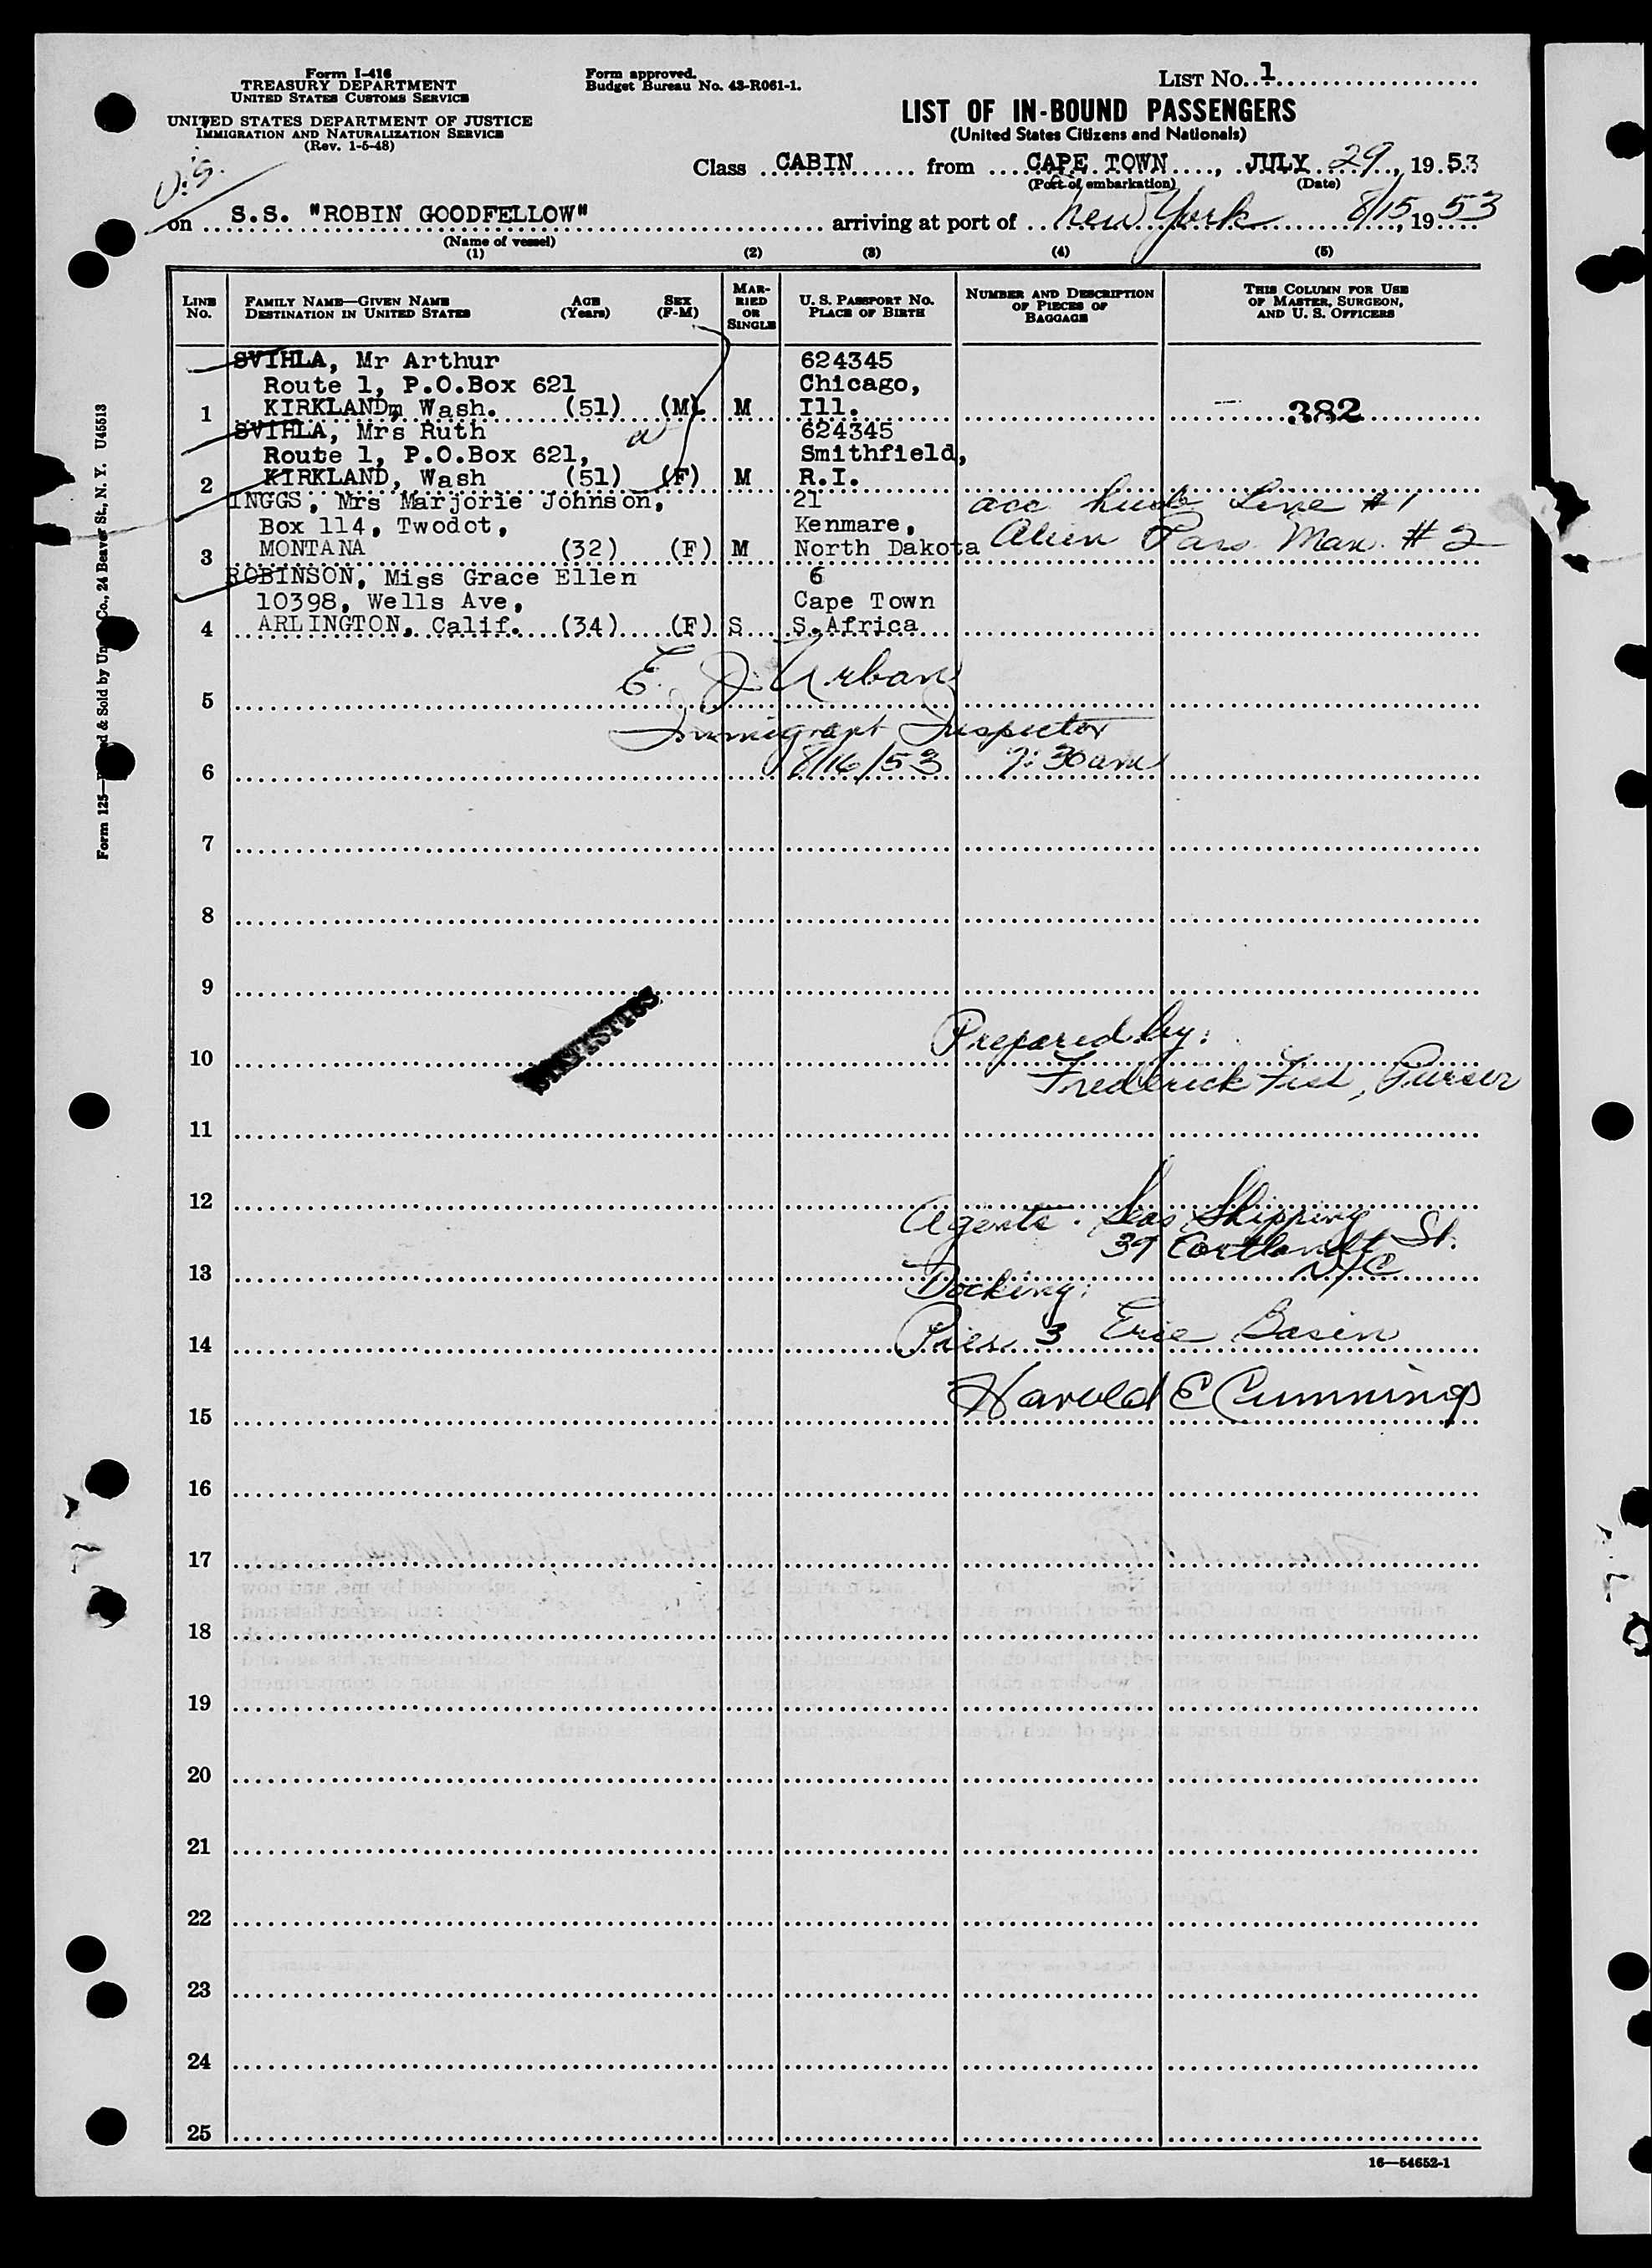 Form I-416
TREASURY DEPARTMENT
UNITED STATES CUSTOMS SERVICE
UNITED STATES DEPARTMENT OF JUSTICE
IMMIGRATION AND NATURALIZATION SERVICE
(Rev. 1-5-48)
Form approved.
Budget Bureau No. 43-R061-1.
LIST No. 1
LIST OF IN-BOUND PASSENGERS
(United States Citizens and Nationals)
U.S.
Class CABIN from CAPE TOWN, JULY 29, 1953
(Port of embarkation) (Date)
on S.S. "ROBIN GOODFELLOW" arriving at port of New York 8/15, 1953
(Name of vessel)
(1) (2) (3) (4) (5)
LINE No.
FAMILY NAME—GIVEN NAME AGE SEX
DESTINATION IN UNITED STATES (Years) (F-M)
MARRIED OR SINGLE
U. S. PASSPORT No.
PLACE OF BIRTH
NUMBER AND DESCRIPTION OF PIECES OF BAGGAGE
THIS COLUMN FOR USE OF MASTER, SURGEON, AND U. S. OFFICERS
SVIHLA, Mr Arthur 624345
Route 1, P.O.Box 621 Chicago,
1 KIRKLANDm Wash. (51) (M) M Ill. 382
SVIHLA, Mrs Ruth 624345
Route 1, P.O.Box 621, Smithfield,
2 KIRKLAND, Wash (51) (F) M R.I.
INGGS, Mrs Marjorie Johnson, 21 acc husb Line #1
Box 114, Twodot, Kenmare, Alien Pass. Man. #2
3 MONTANA (32) (F) M North Dakota
ROBINSON, Miss Grace Ellen 6
10398, Wells Ave, Cape Town
4 ARLINGTON, Calif. (34) (F) S S.Africa
E. J. Urban
5
Immigrant Inspector
6 8/16/53 7:30am
7
8
9
STATISTICS
Prepared by:
10
Frederick Fist, Purser
11
12
Agents. Seas Shipping
39 Cortlandt St.
NYC
13
Docking:
14 Pier 3 Erie Basin
Harold E Cummings
15
16
17
18
19
20
21
22
23
24
25
16—54652-1
Co., 24 Beaver St., N. Y. U45513
Form 125— & Sold by